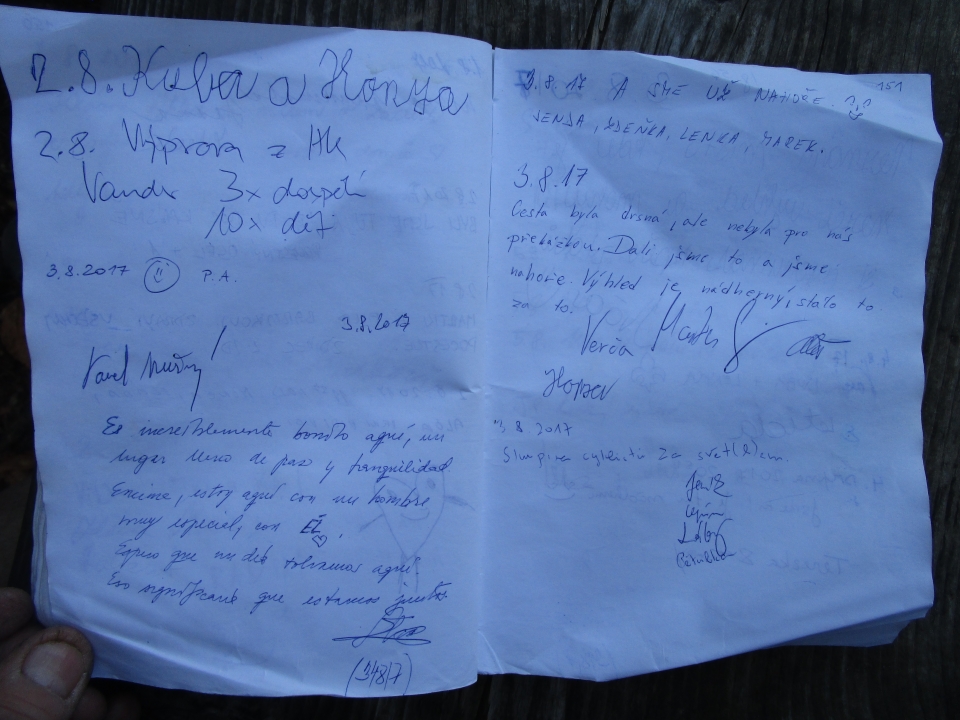 2.8. Kuba a Honza
2.8. Výprava z HK
Vandr 3x dospělí
10x děti
3.8.2017 P.A.
3.8.2017
Pavel
Es increiblemente bonito aquí, un
lugar lleno de paz y tranquilidad
Encima, estoy aquí con un hombre
muy especial, con ÉL ♡.
Espero que un día volvamos aquí.
Eso significará que estamos juntos.
(3/8/7)
151
3.8.17 A SME UŽ NAHOŘE.
JENDA, ZDEŇKA, LENKA, MAREK.
3.8.17
Cesta byla drsná, ale nebyla pro nás
překážkou. Dali jsme to a jsme
nahoře. Výhled je nádherný, stálo to
za to.
Verča
3.8.2017
cyklistů za svět(l)em.